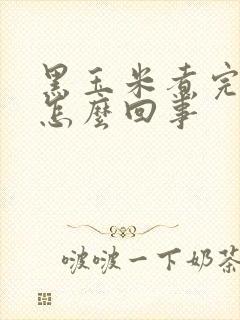 黑玉米煮完
怎麼回事
啵啵一下奶茶